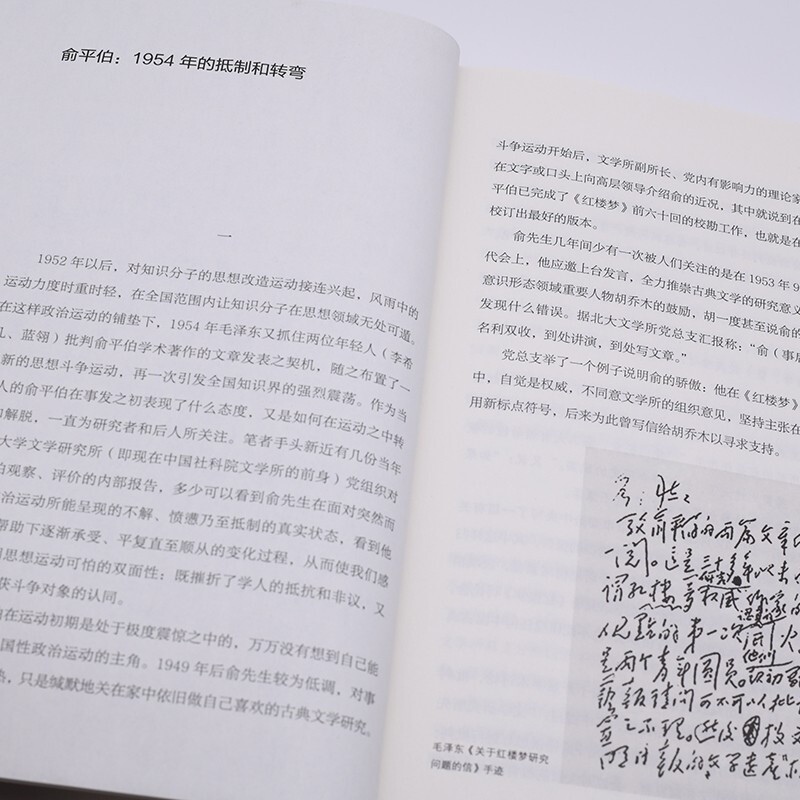 俞平伯：1954 年的抵制和转弯
一
1952 年以后，对知识分子的思想改造运动接连兴起，风雨中的
运动力度时重时轻，在全国范围内让知识分子在思想领域无处可遁。
在这样政治运动的铺垫下，1954 年毛泽东又抓住两位年轻人（李希
凡、蓝翎）批判俞平伯学术著作的文章发表之契机，随之布置了一
新的思想斗争运动，再一次引发全国知识界的强烈震荡。作为当
人的俞平伯在事发之初表现了什么态度，又是如何在运动之中转
解脱，一直为研究者和后人所关注。笔者手头新近有几份当年
大学文学研究所（即现在中国社科院文学所的前身）党组织对
伯观察、评价的内部报告，多少可以看到俞先生在面对突然而
治运动所能呈现的不解、愤懑乃至抵制的真实状态，看到他
帮助下逐渐承受、平复直至顺从的变化过程，从而使我们感
思想运动可怕的双面性：既摧折了学人的抵抗和非议，又
获斗争对象的认同。
在运动初期是处于极度震惊之中的，万万没有想到自己能
国性政治运动的主角。1949 年后俞先生较为低调，对事
热，只是缄默地关在家中依旧做自己喜欢的古典文学研究。
斗争运动开始后，文学所副所长、党内有影响力的理论家
在文字或口头上向高层领导介绍俞的近况，其中就说到在
平伯已完成了《红楼梦》前六十回的校勘工作，也就是在
校订出最好的版本。
俞先生几年间少有一次被人们关注的是在 1953 年 9
代会上，他应邀上台发言，全力推崇古典文学的研究意义
意识形态领域重要人物胡乔木的鼓励，胡一度甚至说俞的
发现什么错误。据北大文学所党总支汇报称：“俞（事后
名利双收，到处讲演，到处写文章。”
党总支举了一个例子说明俞的骄傲：他在《红楼梦》
中，自觉是权威，不同意文学所的组织意见，坚持主张在
用新标点符号，后来为此曾写信给胡乔木以寻求支持。
各同志：
驳俞平伯的两篇文章
一阅。这是三十多年以来
谓红楼梦权威作家的
观点的第一次
是两个青年团员。
毛泽东《关于红楼梦研究
问题的信》手迹